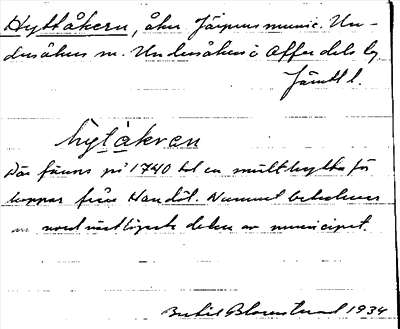 Hyttåkern, åker Järpens munic. Un-
dersåkers sn. Undersåkers o Offerdals tg
Jämtl.
hytåkran
Där fanns på 1740 tal en smälthytta för
koppar från Handöl. Namnet betecknar
nordvästligaste delen av municipiet.
Bertil Blomstrand 1934